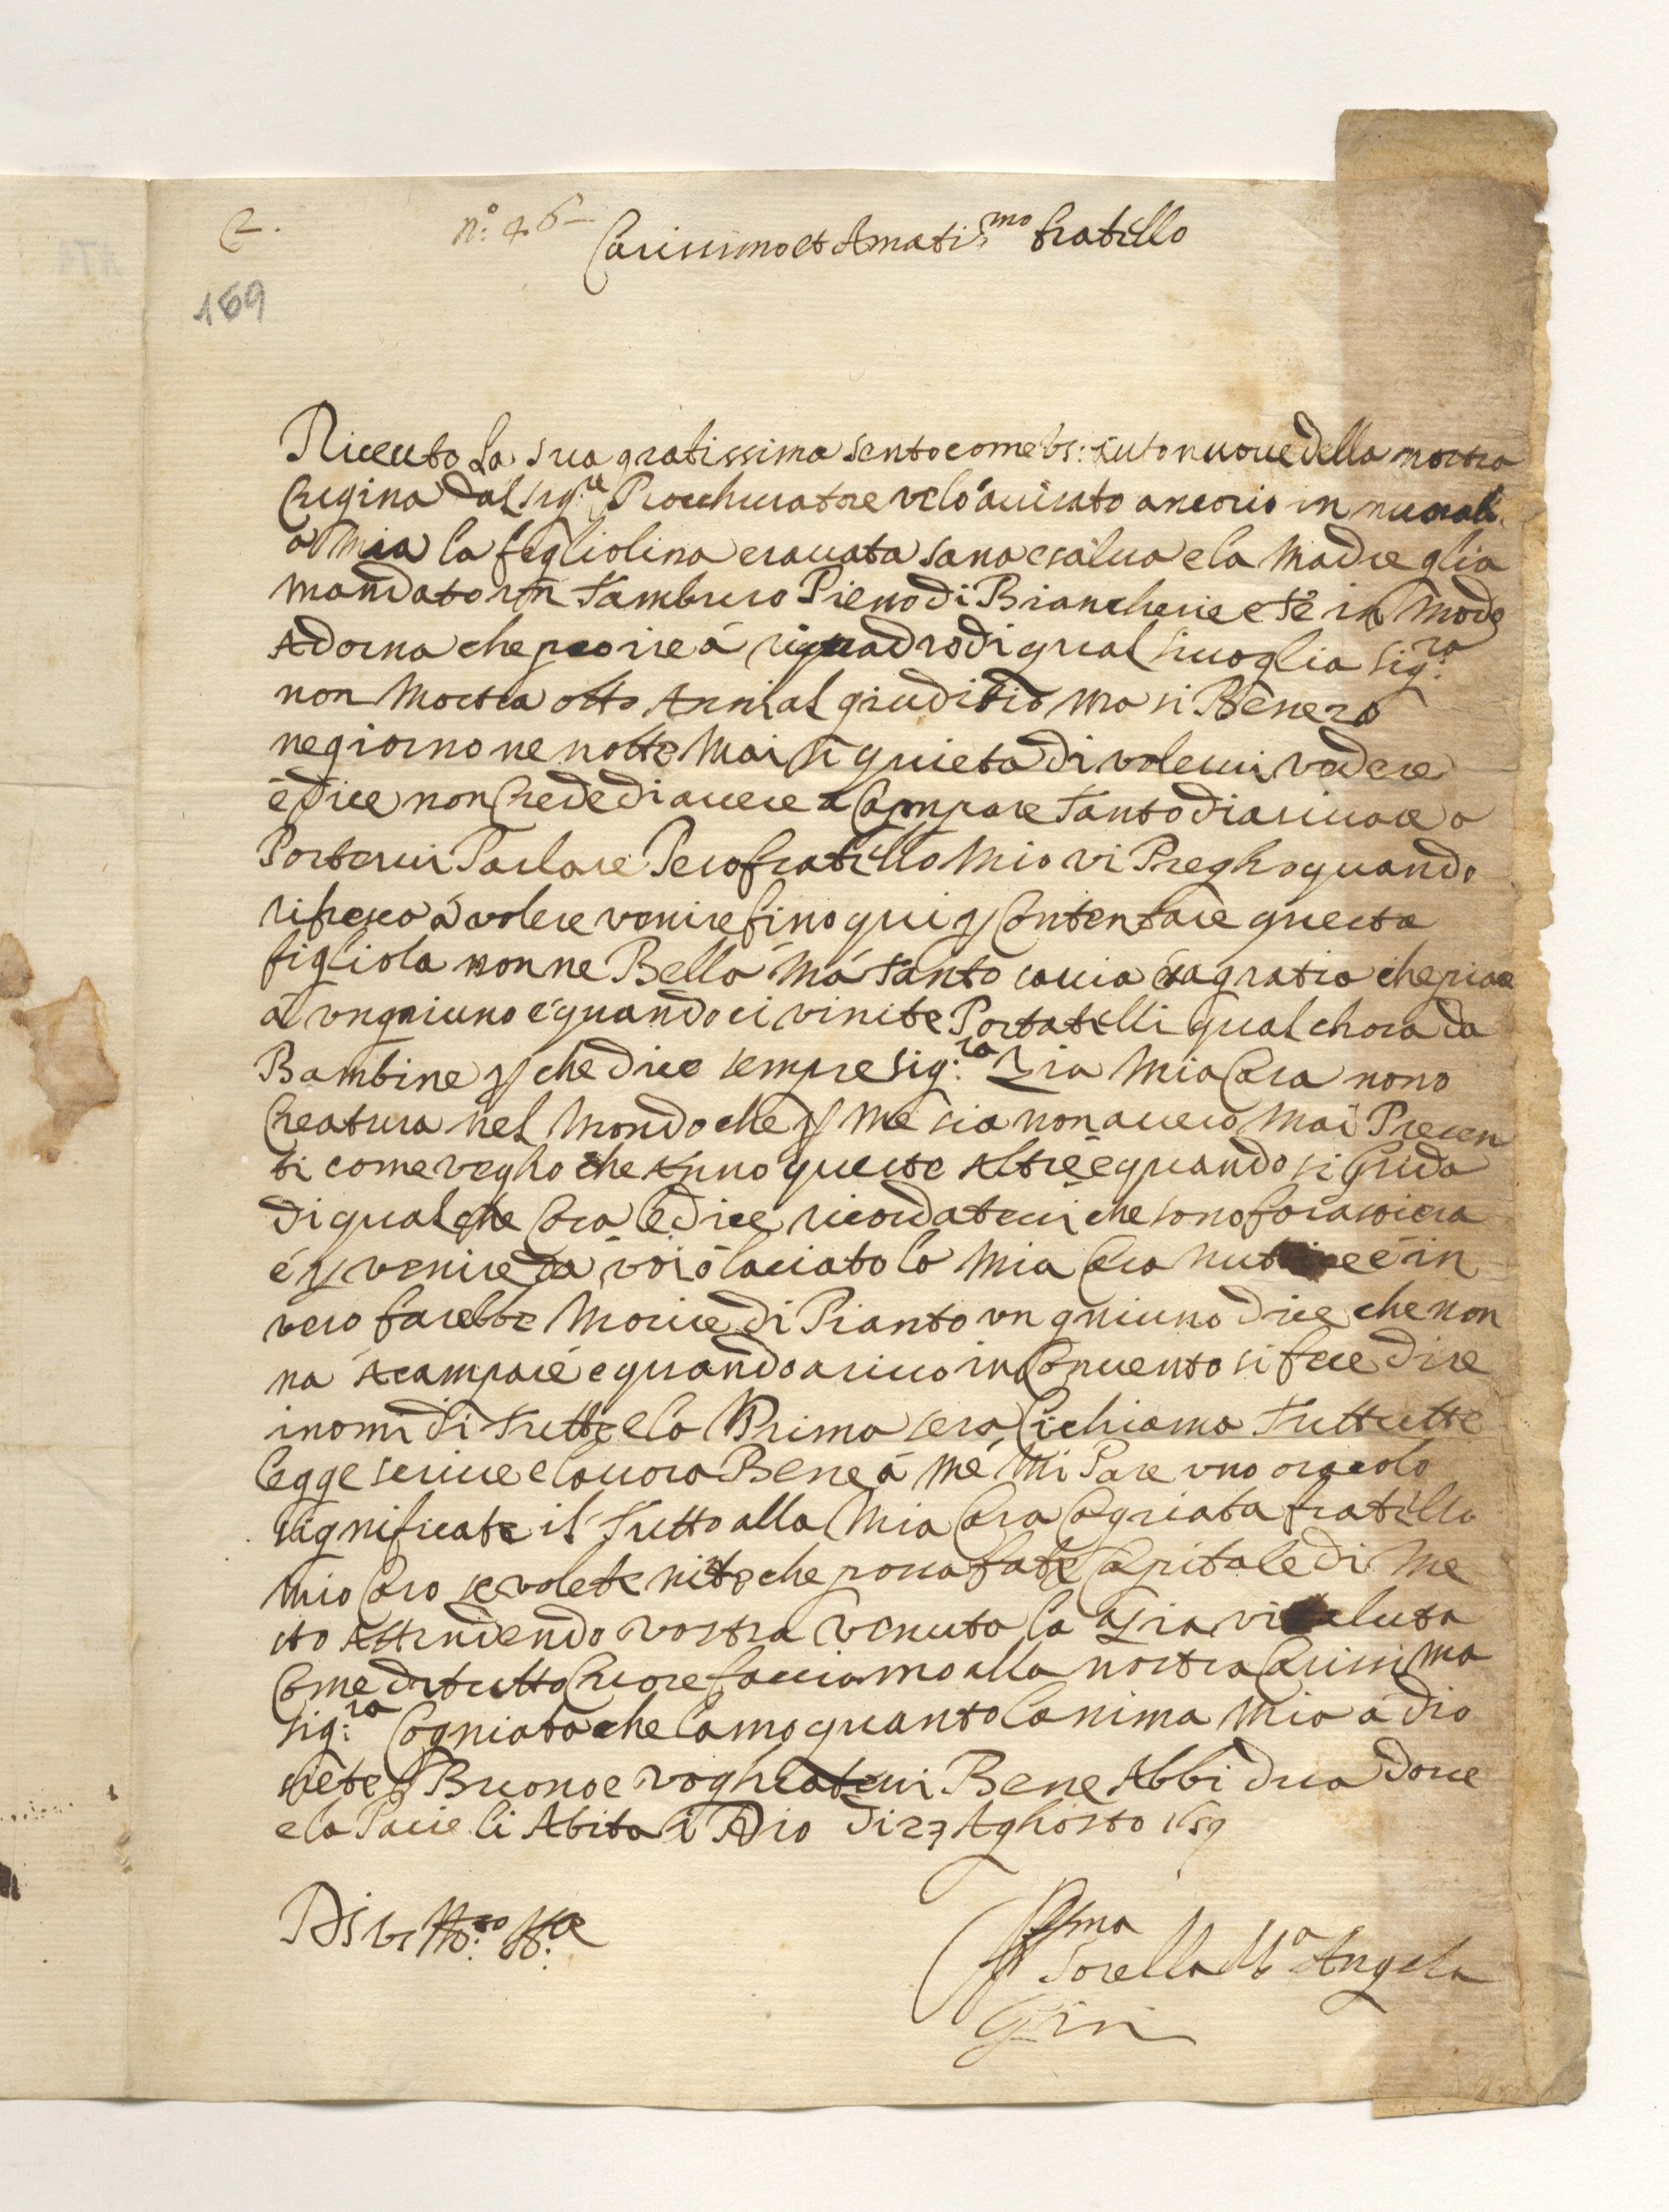 C.
nº: 46
169
Carissimo et Amatis.mo fratello
Riceuto La sua gratissima sento come vs: auto nuoue della nostra
Cugina dal sig.re Procchuratore velo auisato ancorio in
Mia la figliolina erauata sana e salua ela Madre glia
Mandato un Tamburo Pieno di Biancherie e sè in Modo
Adorna che po ire á riquadro di qual si uoglia sig:ra
non Mostra otto Anni al giuditio ma si Bene 20
ne giorno ne notte Mai si quieta di volerui vedere
e dice non Crede di auere a Campare Tanto di ariuare a
Poterui Parlare Pero fratello Mio vi Pregho quando
rifrescha a volere venire fino qui p Contentare questa
figliola non ne Bella Má Tanto sauia e agratia che piace
a ungniuno e quando ci vinite Portatelli qual chosa da
Bambine p che dice sempre sig:ra Zia Mia Cara nono
Creatura nel Mondo che p Me sia non auero Mai Presen
ti come vegho che Anno queste Altre e quando si Grida
di qualche Cosa e dice ricordateui che sono forastiera
é p venire da voi ó lasciato la Mia Cara nutrice é in
vero farebbe Morire di Pianto un gniuno dice che non
na Acampare e quando ariuo in Conuento si fece dire
i nomi di Tutte e la Prima sera Cichiamo Tuttutte
legge scriue e lauora Bene á Me Mi Pare uno oracolo
significate il Tutto alla Mia Cara Cogniata fratello
Mio Caro se volete nite che possa fate Capitale di Me
sto Attendendo vostra venuta la Zia vi saluta
Come di tutto Cuore facciamo alla nostra Carissima
sig:ra Cogniata che lamo quanto lanima Mia a dio
siete Buono e vogliateui Bene Abbi dua doue
e la Pacie li Abita i Dio Di 27 Aghosto 1659
Di vs
Sorella M.a Angela
Gini